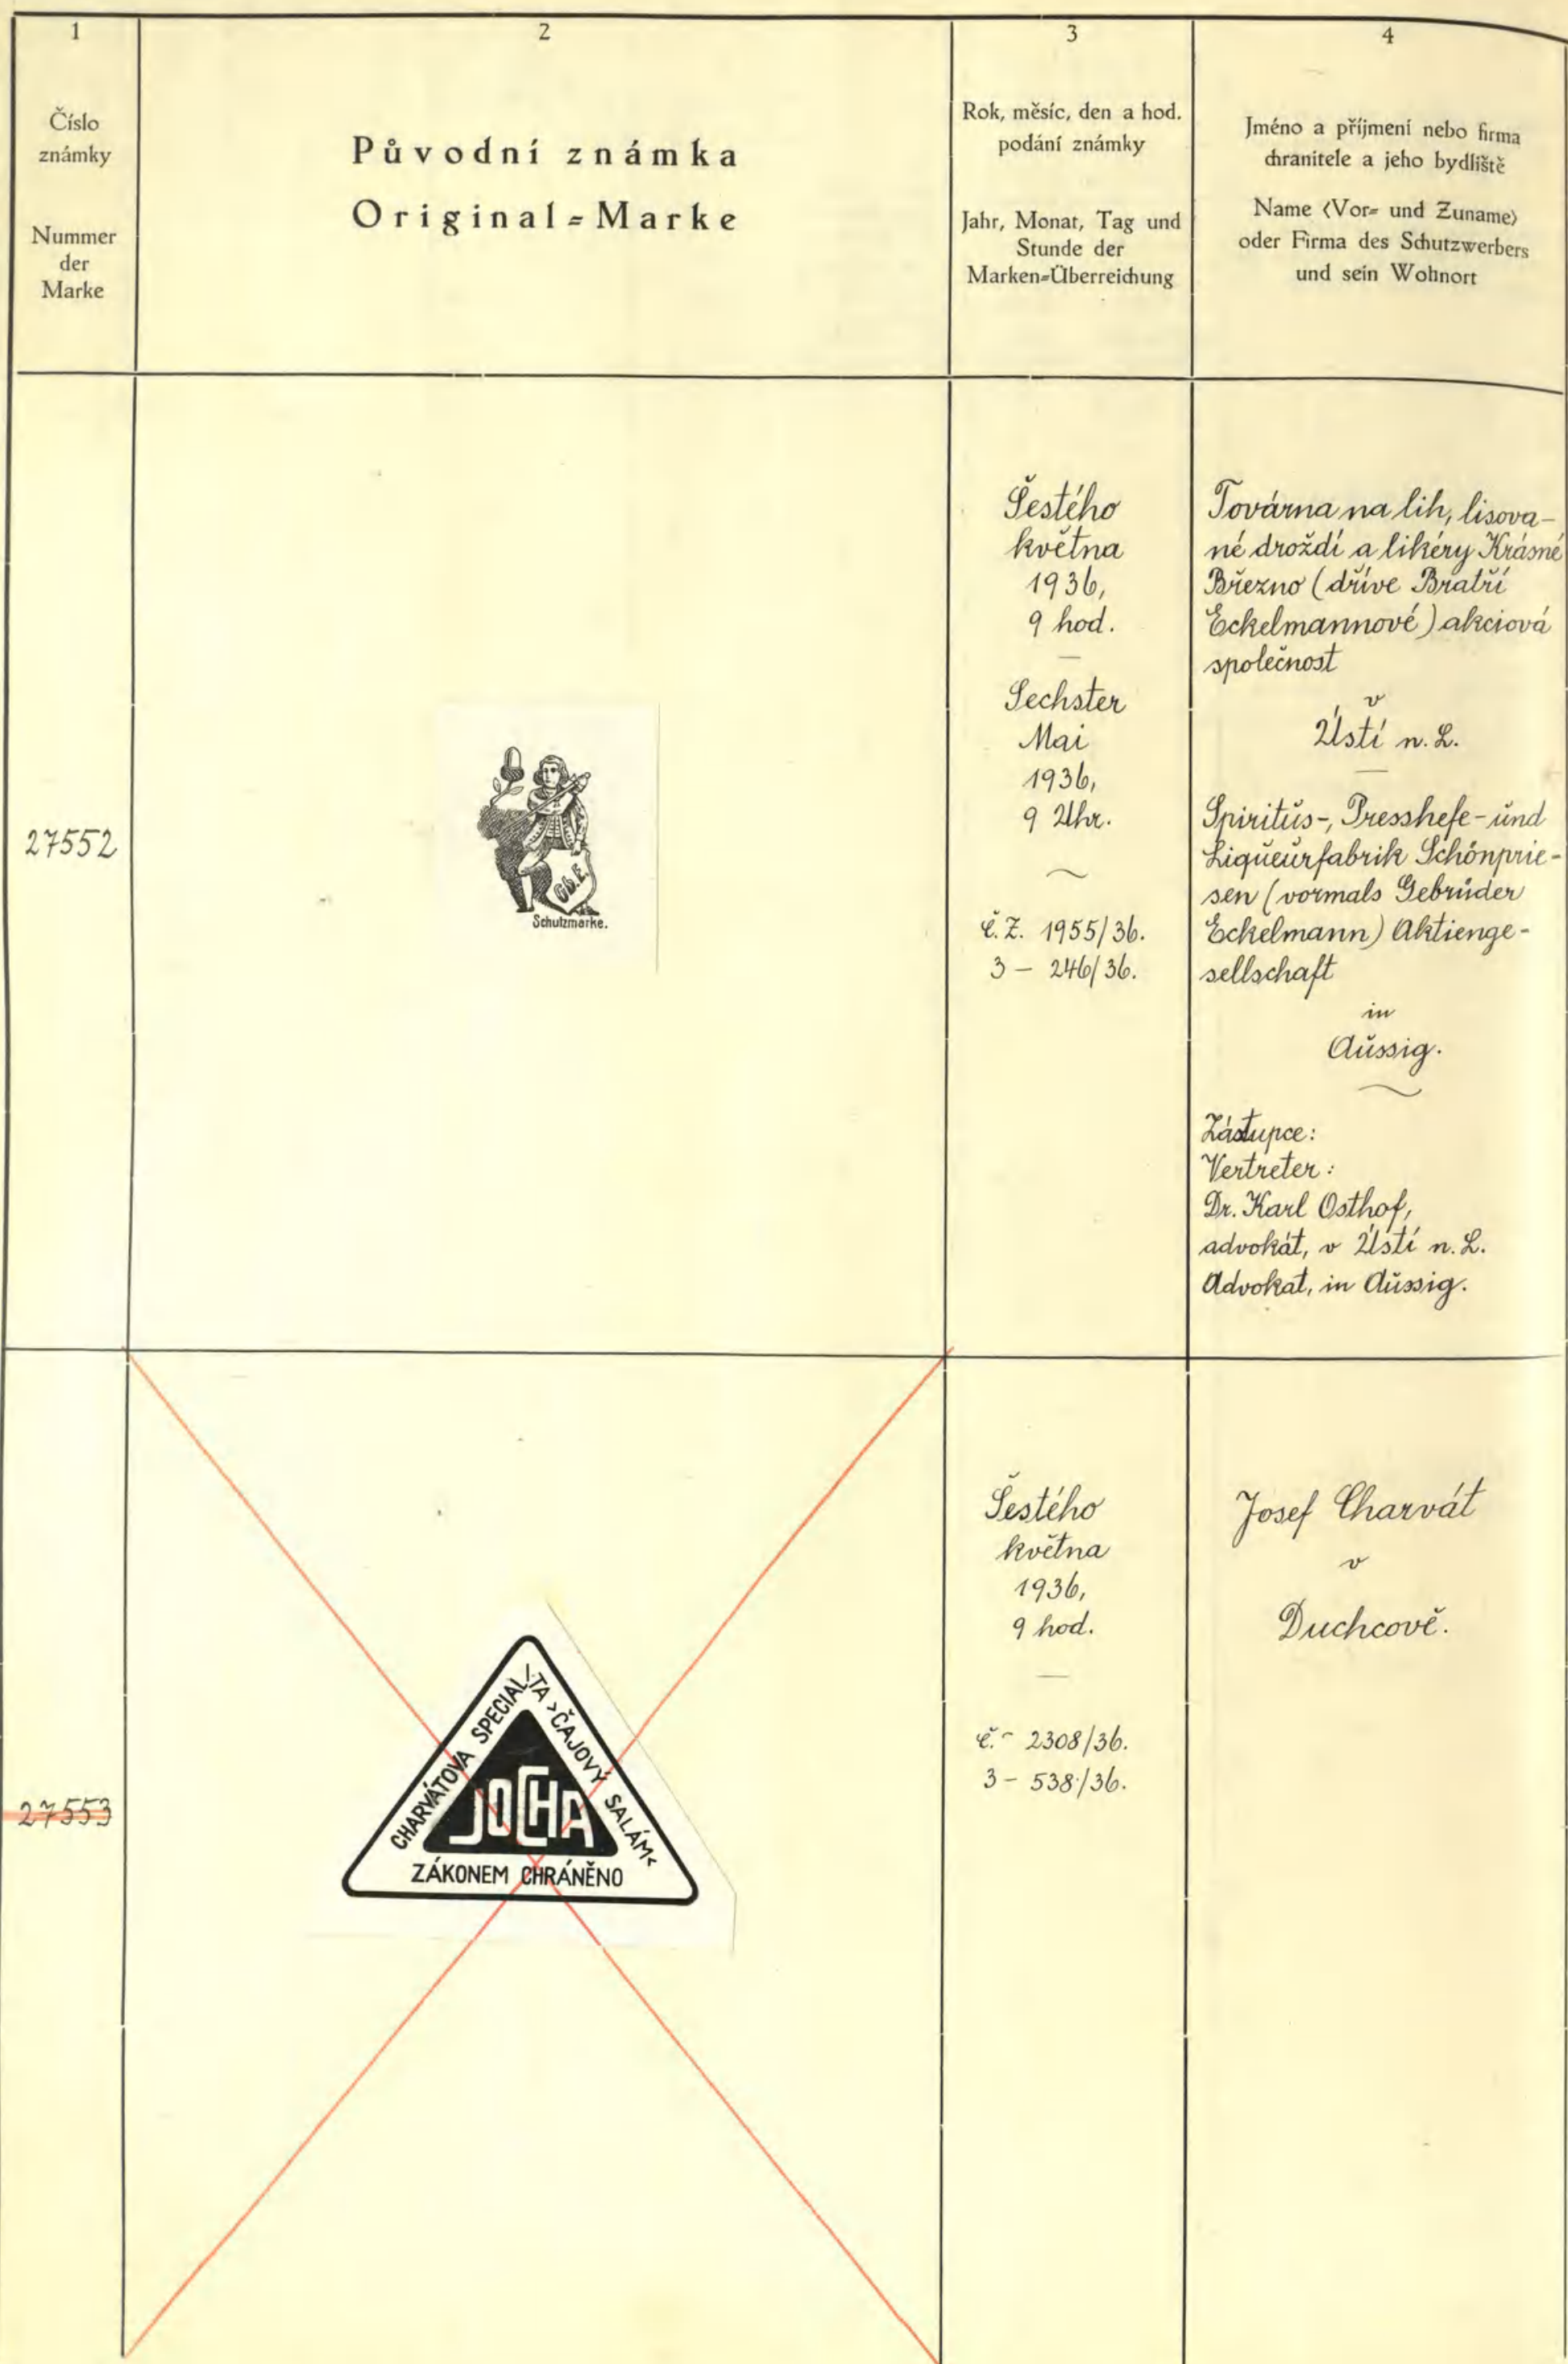 1
2
3
4
Číslo
známky
Nummer
der
Marke
Původní známka
Original=Marke
Rok, měsíc, den a hod.
podání známky
Jahr, Monat, Tag und
Stunde der
Marken=Überreichung
Jméno a příjmení nebo firma
chranitele a jeho bydliště
Name (Vor= und Zuname)
oder Firma des Schutzwerbers
und sein Wohnort
27552
Gb.E.
Schutzmarke.
Šestého
května
1936,
9 hod.
—
Sechster
Mai
1936,
9 Uhr.
~
č.Z. 1955/36.
3 – 246/36.
Továrna na lih, lisova-
né droždí a likéry Krásné
Březno (dříve Bratří
Eckelmannové) akciová
společnost
v
Ústí n. L.
—
Spiritŭs-, Presshefe- ŭnd
Liqŭeŭrfabrik Schönprie-
sen (vormals Gebrüder
Eckelmann) Aktienge-
sellschaft
in
Aŭssig.
~
Zástupce:
Vertreter:
Dr. Karl Osthof,
advokát, v Ústí n. L.
Advokat, in Aŭssig.
27553
CHARVÁTOVA SPECIALITA >ČAJOVÝ SALÁM<
JOCHA
ZÁKONEM CHRÁNĚNO
Šestého
května
1936,
9 hod.
—
č. ~ 2308/36.
3 – 538/36.
Josef Charvát
v
Duchcově.